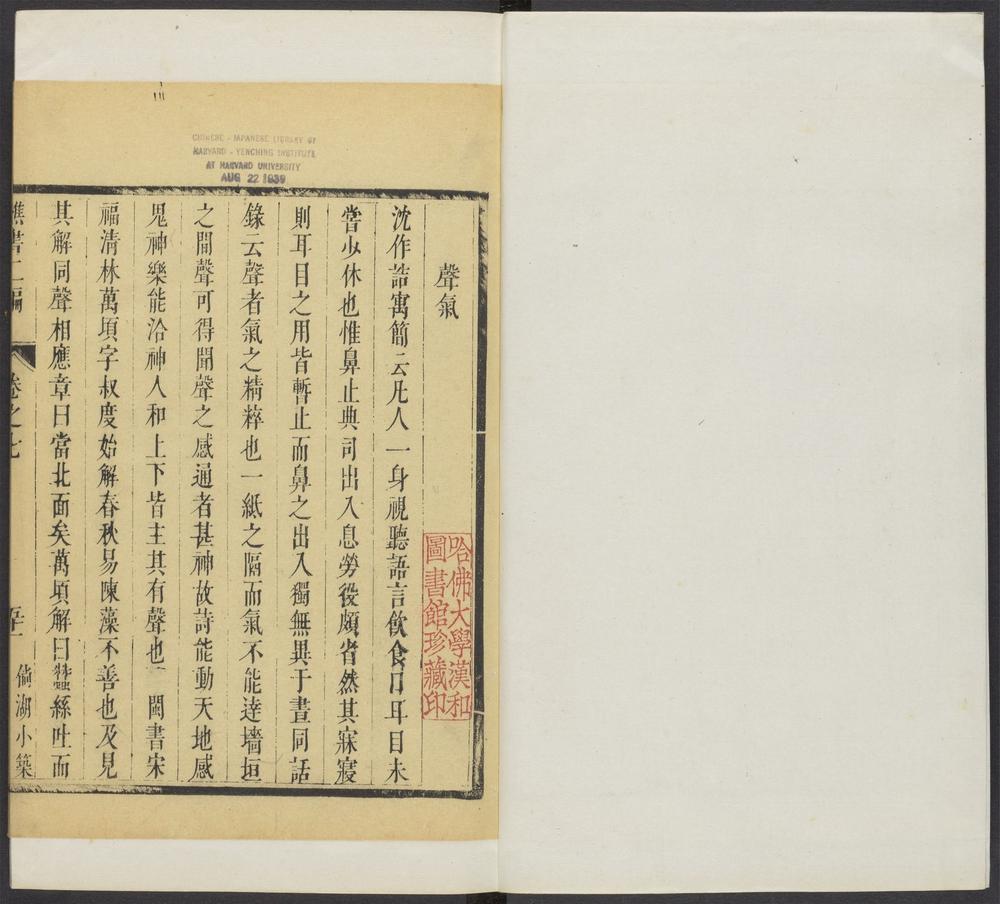 CHINESE - JAPANESE LIBRARY OF
HARVARD - YENCHING INSTITUTE
AT HARVARD UNIVERSITY
AUG 22 1939
聲氣
沈作誥寓簡云凡人一身視聽語言飲食口耳目未
嘗少休也惟鼻止典司出入息勞役頗省然其寐寢
則耳目之用皆暫止而鼻之出入獨無異于晝同話
錄云聲者氣之精粹也一紙之隔而氣不能逹墻垣
之間聲可得聞聲之感通者甚神故詩能動天地感
鬼神樂能洽神人和上下皆主其有聲也 閩書宋
福清林萬頃字叔度始解春秋易陳藻不善也及見
其解同聲相應章曰當北面矣萬頃解曰蠶絲吐而
樵書二編
卷之七
倘湖小築
哈佛大學漢和
圖書館珍藏印